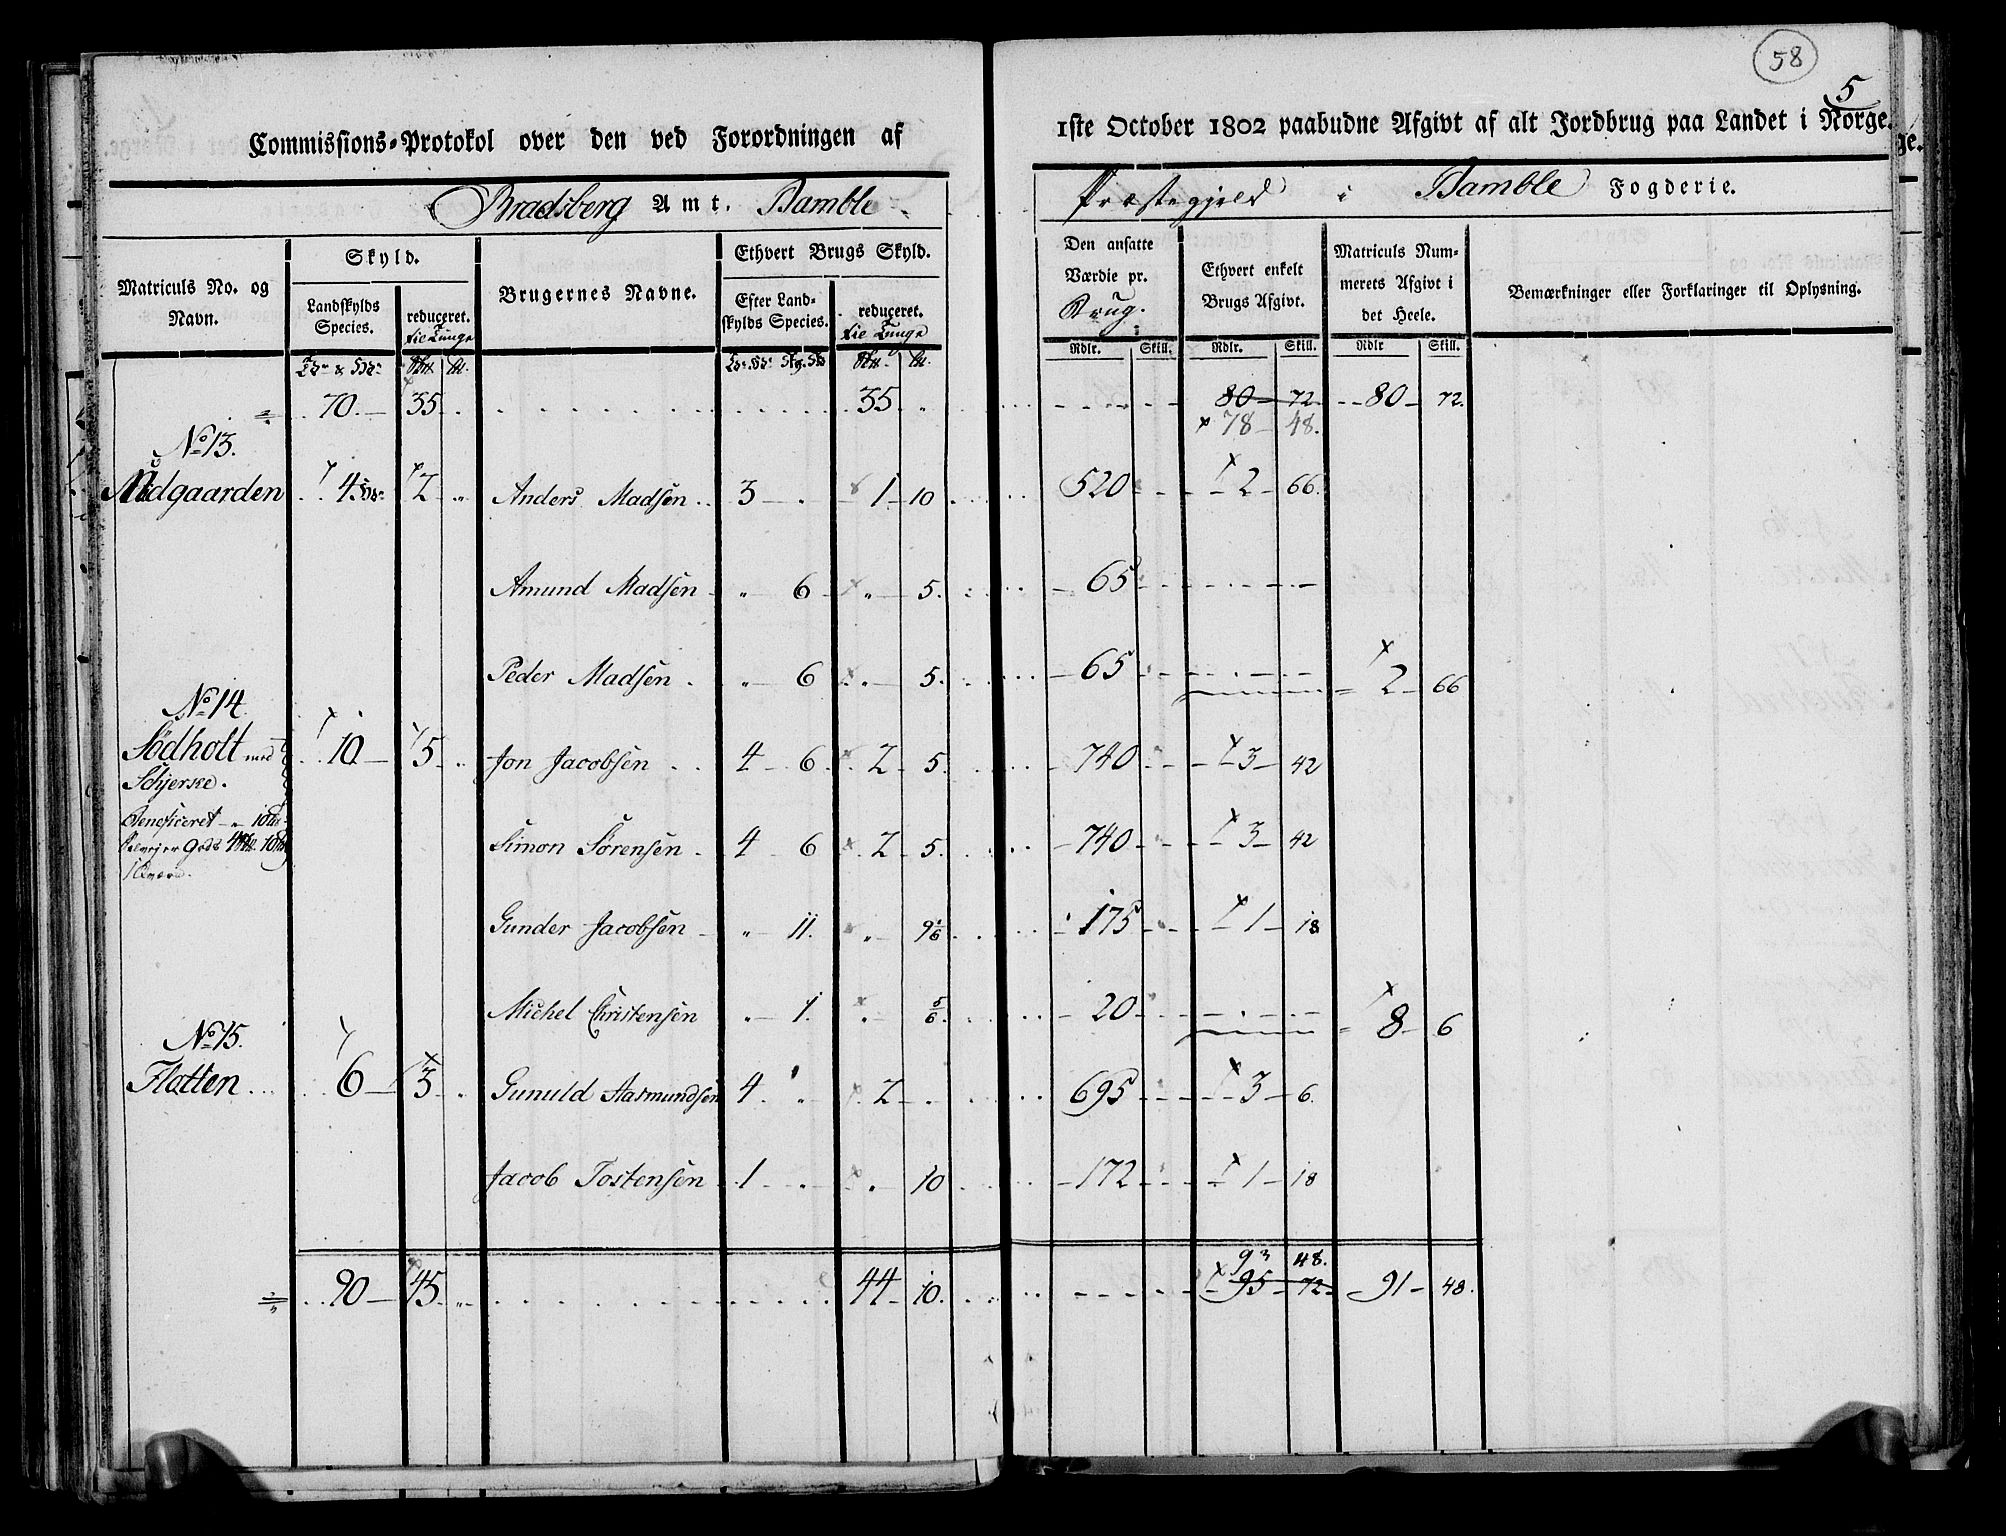 58
5
Commissions-Protokol over den ved Forordningen af 1ste October 1802 paabudne Afgivt af alt Jordbrug paa Landet i Norge.
Bradsberg Amt. Bamble Præstegjeld i Bamble Fogderie.
Matriculs No. og Navn.
Skyld.
Landskylds Species.
reduceret. til Tunge
Brugernes Navne.
Ethvert Brugs Skyld.
Efter Landskylds Species.
reduceret. til Tunge
Den ansatte Værdie pr. Brug.
Ethvert enkelt Brugs Afgivt.
Matriculs Nummerets Afgivt i det Heele.
Bemærkninger eller Forklaringer til Oplysning.
Rdlr. Skill. Rdlr. Skill. Rdlr Skill.
70 35 35 80 72 80 72.
78 48.
No 13.
Aadgaarden 4 2 " Anders Madsen 3 1 10 520 2 66.
Amund Madsen " 6 " 5. 65
Peder Madsen " 6 " 5. 65 2 66
No 14.
Södholt med 10 5 Jon Jacobsen 4 6 2 5. 740 3 42
Schjerke.
Beneficeret
Simon Sörensen 4 6 2 5. 740 3 42
Gunder Jacobsen " 11. " 9 1/6 175 1 18
Michel Christensen " 1. " 5/6 20 8 6
No 15.
Flatten 6 3 Gunuld Aasmundsen 4. " 2 695 3 6.
Jacob Tostensen 1 " 10 172 1 18
93 48.
90 45 " 44 10. 95 72 91 48.